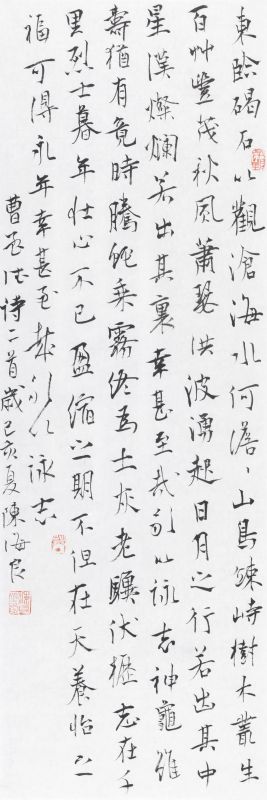 東臨碣石以觀滄海水何澹〻山島竦峙樹木叢生
百艸豐茂秋風蕭瑟洪波湧起日月之行若出其中
星漢燦爛若出其裏幸甚至哉歌以詠志神龜雖
壽猶有竟時騰蛇乘霧終為土灰老驥伏櫪志在千
里烈士暮年壯心不已盈縮之期不但在天養怡之
福可得永年幸甚至哉歌以詠志
曹孟德詩二首歲己亥夏陳海良